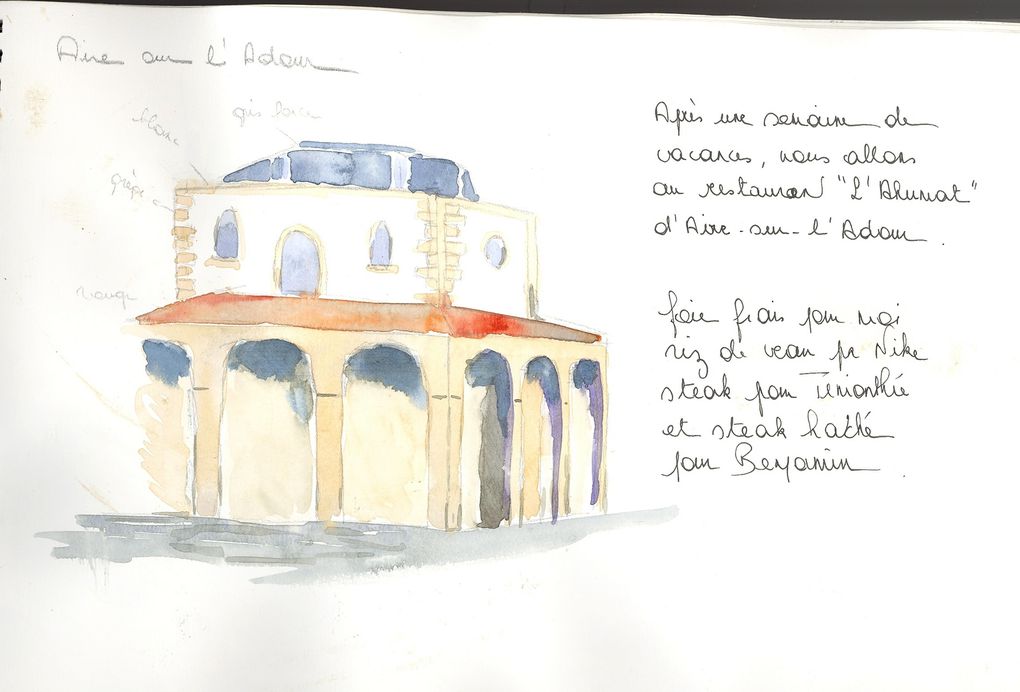 Aire sur l'Adour
blanc
gris foncé
grège
rouge
Après une semaine de
vacances, nous allons
au restaurant "L'Ahumat"
d'Aire-sur-l'Adour.
foie frais pour moi
riz de veau pr Mike
steak pour Timothée
et steak haché
pour Benjamin.